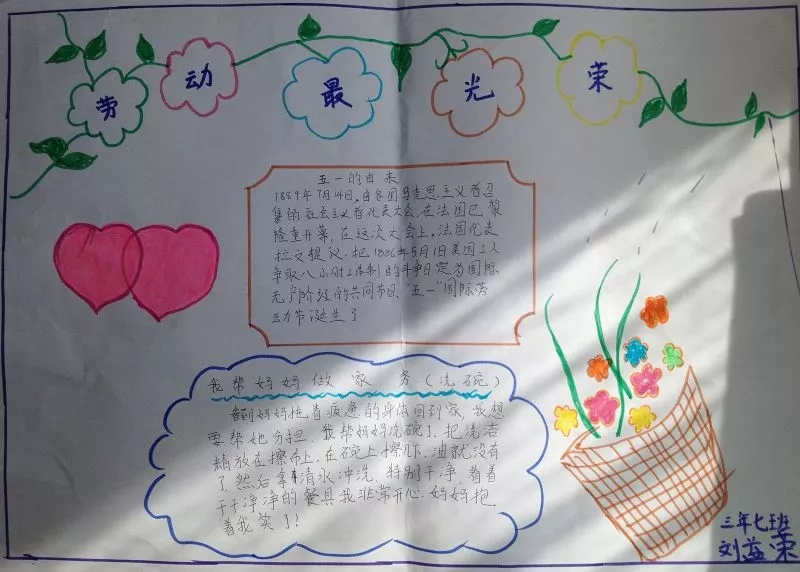 劳动最光荣
五一的由来
1889年7月14日,由各国马克思主义者召
集的社会主义者代表大会,在法国巴黎
隆重开幕,在这次大会上,法国代表
拉文提议:把1886年5月1日美国工人
争取八小时工作制的斗争日定为国际
无产阶级的共同节日,“五一”国际劳
动节诞生了
我帮妈妈做家务(洗碗)
看到妈妈拖着疲惫的身体回到家,我想
要帮她分担,我帮妈妈洗碗了,把洗洁
精放在擦布上,在碗上擦一下,油就没有
了,然后拿清水冲洗,特别干净,看着
干干净净的餐具我非常开心,妈妈抱
着我笑了!
三年七班
刘益荣